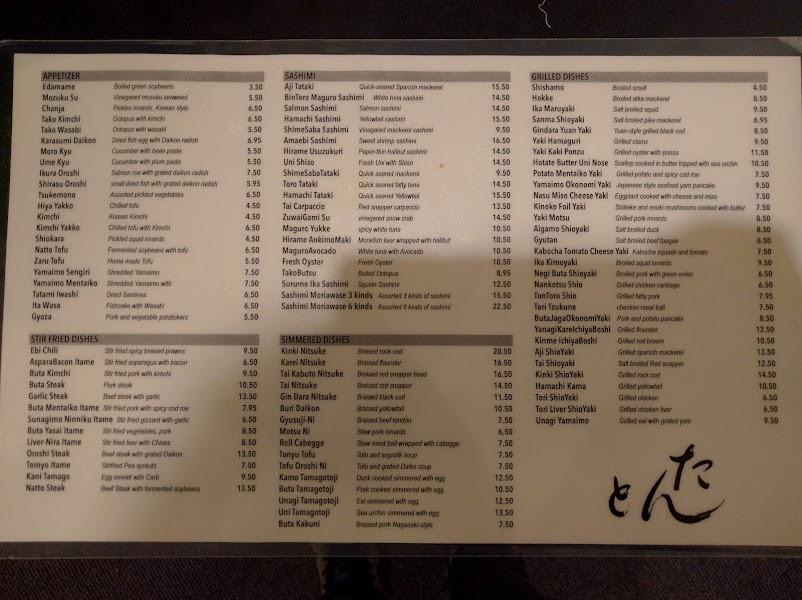 APPETIZER
Edamame Boiled green soybeans 3.50
Mozuku Su Vinegared mozuku seaweed 5.50
Chanja Pickles innards, Korean style 6.50
Tako Kimchi Octopus with kimchi 6.50
Tako Wasabi Octopus with wasabi 5.50
Karasumi Daikon Dried fish egg with Daikon radish 6.95
Moro Kyu Cucumber with bean paste 5.50
Ume Kyu Cucumber with plum paste 5.50
Ikura Oroshi Salmon roe with grated daikon radish 7.50
Shirasu Oroshi small dried fish with grated daikon radish 5.95
Tsukemono Assorted pickled vegetables 6.50
Hiya Yakko Chilled tofu 4.50
Kimchi Korean Kimchi 4.50
Kimchi Yakko Chilled tofu with Kimchi 6.50
Shiokara Pickled squid innards 4.50
Natto Tofu Fermented soybeans with tofu 6.50
Zaru Tofu Home made Tofu 5.50
Yamaimo Sengiri Shredded Yamaimo 7.50
Yamaimo Mentaiko Shredded Yamaimo with 7.50
Tatami Iwashi Dried Sardines 6.50
Ita Wasa Fishcake with Wasabi 6.50
Gyoza Pork and vegetable potstickers 5.50
STIR FRIED DISHES
Ebi Chili Stir fried spicy braised prawns 9.50
AsparaBacon Itame Stir fried asparagus with bacon 6.50
Buta Kimchi Stir fried pork with kimchi 9.50
Buta Steak Pork steak 10.50
Garlic Steak Beef steak with garlic 13.50
Buta Mentaiko Itame Stir fried pork with spicy cod roe 7.95
Sunagimo Ninniku Itame Stir fried gizzard with garlic 6.50
Buta Yasai Itame Stir fried vegetables, pork 8.50
Liver-Nira Itame Stir fried liver with Chives 8.50
Oroshi Steak Beef steak with grated Daikon 13.50
Tomyo Itame Stirfried Pea sprouts 7.50
Kani Tamago Egg omelet with Carb 9.50
Natto Steak Beef Steak with fermented soybeans 13.50
SASHIMI
Aji Tataki Quick-seared Spanish mackerel 15.50
BinToro Maguro Sashimi White tuna sashimi 14.50
Salmon Sashimi Salmon sashimi 14.50
Hamachi Sashimi Yellowtail sashimi 15.50
ShimeSaba Sashimi Vinegared mackerel sashimi 9.50
Amaebi Sashimi Sweet shrimp sashimi 16.50
Hirame Usuzukuri Paper-thin halibut sashimi 14.50
Uni Shiso Fresh Uni with Shiso 14.50
ShimeSabaTataki Quick seared mackerel 9.50
Toro Tataki Quick seared fatty tuna 14.50
Hamachi Tataki Quick seared Yellowtail 15.50
Tai Carpaccio Red snapper carpaccio 13.50
ZuwaiGami Su vinegared snow crab 14.50
Maguro Yukke spicy white tuna 10.50
Hirame AnkimoMaki Monkfish liver wrapped with halibut 10.50
MaguroAvocado White tuna with Avocado 10.50
Fresh Oyster Fresh Oyster 10.50
TakoButsu Boiled Octopus 8.95
Sururne Ika Sashimi Squide Sashimi 12.50
Sashimi Moriawase 3 kinds Assorted 3 kinds of sashimi 15.50
Sashimi Moriawase 6 kinds Assorted 6 kinds of sashimi 22.50
SIMMERED DISHES
Kinki Nitsuke Braised rock cod 20.50
Karei Nitsuke Braised flounder 16.50
Tai Kabuto Nitsuke Braised red snapper head 16.50
Tai Nitsuke Braised red snapper 14.50
Gin Dara Nitsuke Braised black cod 11.50
Buri Daikon Braised yellowtail 10.50
Gyusuji-Ni Braised beef tendon 7.50
Motsu Ni Stew pork innards 6.50
Roll Cabegge Stew meat ball wrapped with cabegge 7.50
Tonyu Tofu Tofu and soymilk soup 7.50
Tofu Oroshi Ni Tofu and grated Daiko soup 7.50
Kamo Tamagotoji Duck cooked simmered with egg 12.50
Buta Tamagotoji Pork cooked simmered with egg 10.50
Unagi Tamagotoji Eel simmered with egg 12.50
Uni Tamagotoji Sea urchin simmered with egg 13.50
Buta Kakuni Braised pork Nagasaki-style 7.50
GRILLED DISHES
Shishamo Broiled smelt 4.50
Hokke Broiled atka mackerel 8.50
Ika Maruyaki Salt broiled squid 9.50
Sanma Shioyaki Salt broiled pike mackerel 6.95
Gindara Yuan Yaki Yuan-style grilled black cod 8.50
Yaki Hamaguri Grilled clams 9.50
Yaki Kaki Ponzu Grilled oyster with ponzu 11.50
Hotate Butter Uni Nose Scallop cooked in butter topped with sea urchin 10.50
Potato Mentaiko Yaki Grilled potato and spicy cod roe 7.50
Yamaimo Okonomi Yaki Japanese style seafood yam pancake 9.50
Nasu Miso Cheese Yaki Eggplant cooked with cheese and miso 7.50
Kinoko Foil Yaki Shiitake and enoki mushrooms cooked with butter 7.50
Yaki Motsu Grilled pork innards 8.50
Aigamo Shioyaki Salt broiled duck 8.50
Gyutan Salt broiled beef tongue 6.50
Kabocha Tomato Cheese Yaki Kabocha squash and tomato 7.50
Ika Kimoyaki Broiled squid innards 9.50
Negi Buta Shioyaki Broiled pork with green onion 6.50
Nankotsu Shio Grilled chicken cartilage 6.50
TonToro Shio Grilled fatty pork 7.95
Tori Tsukune chicken meat ball 7.50
ButaJagaOkonomiYaki Pork and potato pancake 8.50
YanagiKareiIchiyaBoshi Grilled flounder 12.50
Kinme IchiyaBoshi Grilled red bream 10.50
Aji ShioYaki Grilled spanish mackerel 13.50
Tai Shioyaki Salt broiled Red snapper 12.50
Kinki ShioYaki Grilled rock cod 14.50
Hamachi Kama Grilled yellowtail 10.50
Tori ShioYaki Grilled chicken 6.50
Tori Liver ShioYaki Grilled chicken liver 6.50
Unagi Yamaimo Grilled eel with grated yom 9.50
とんたん